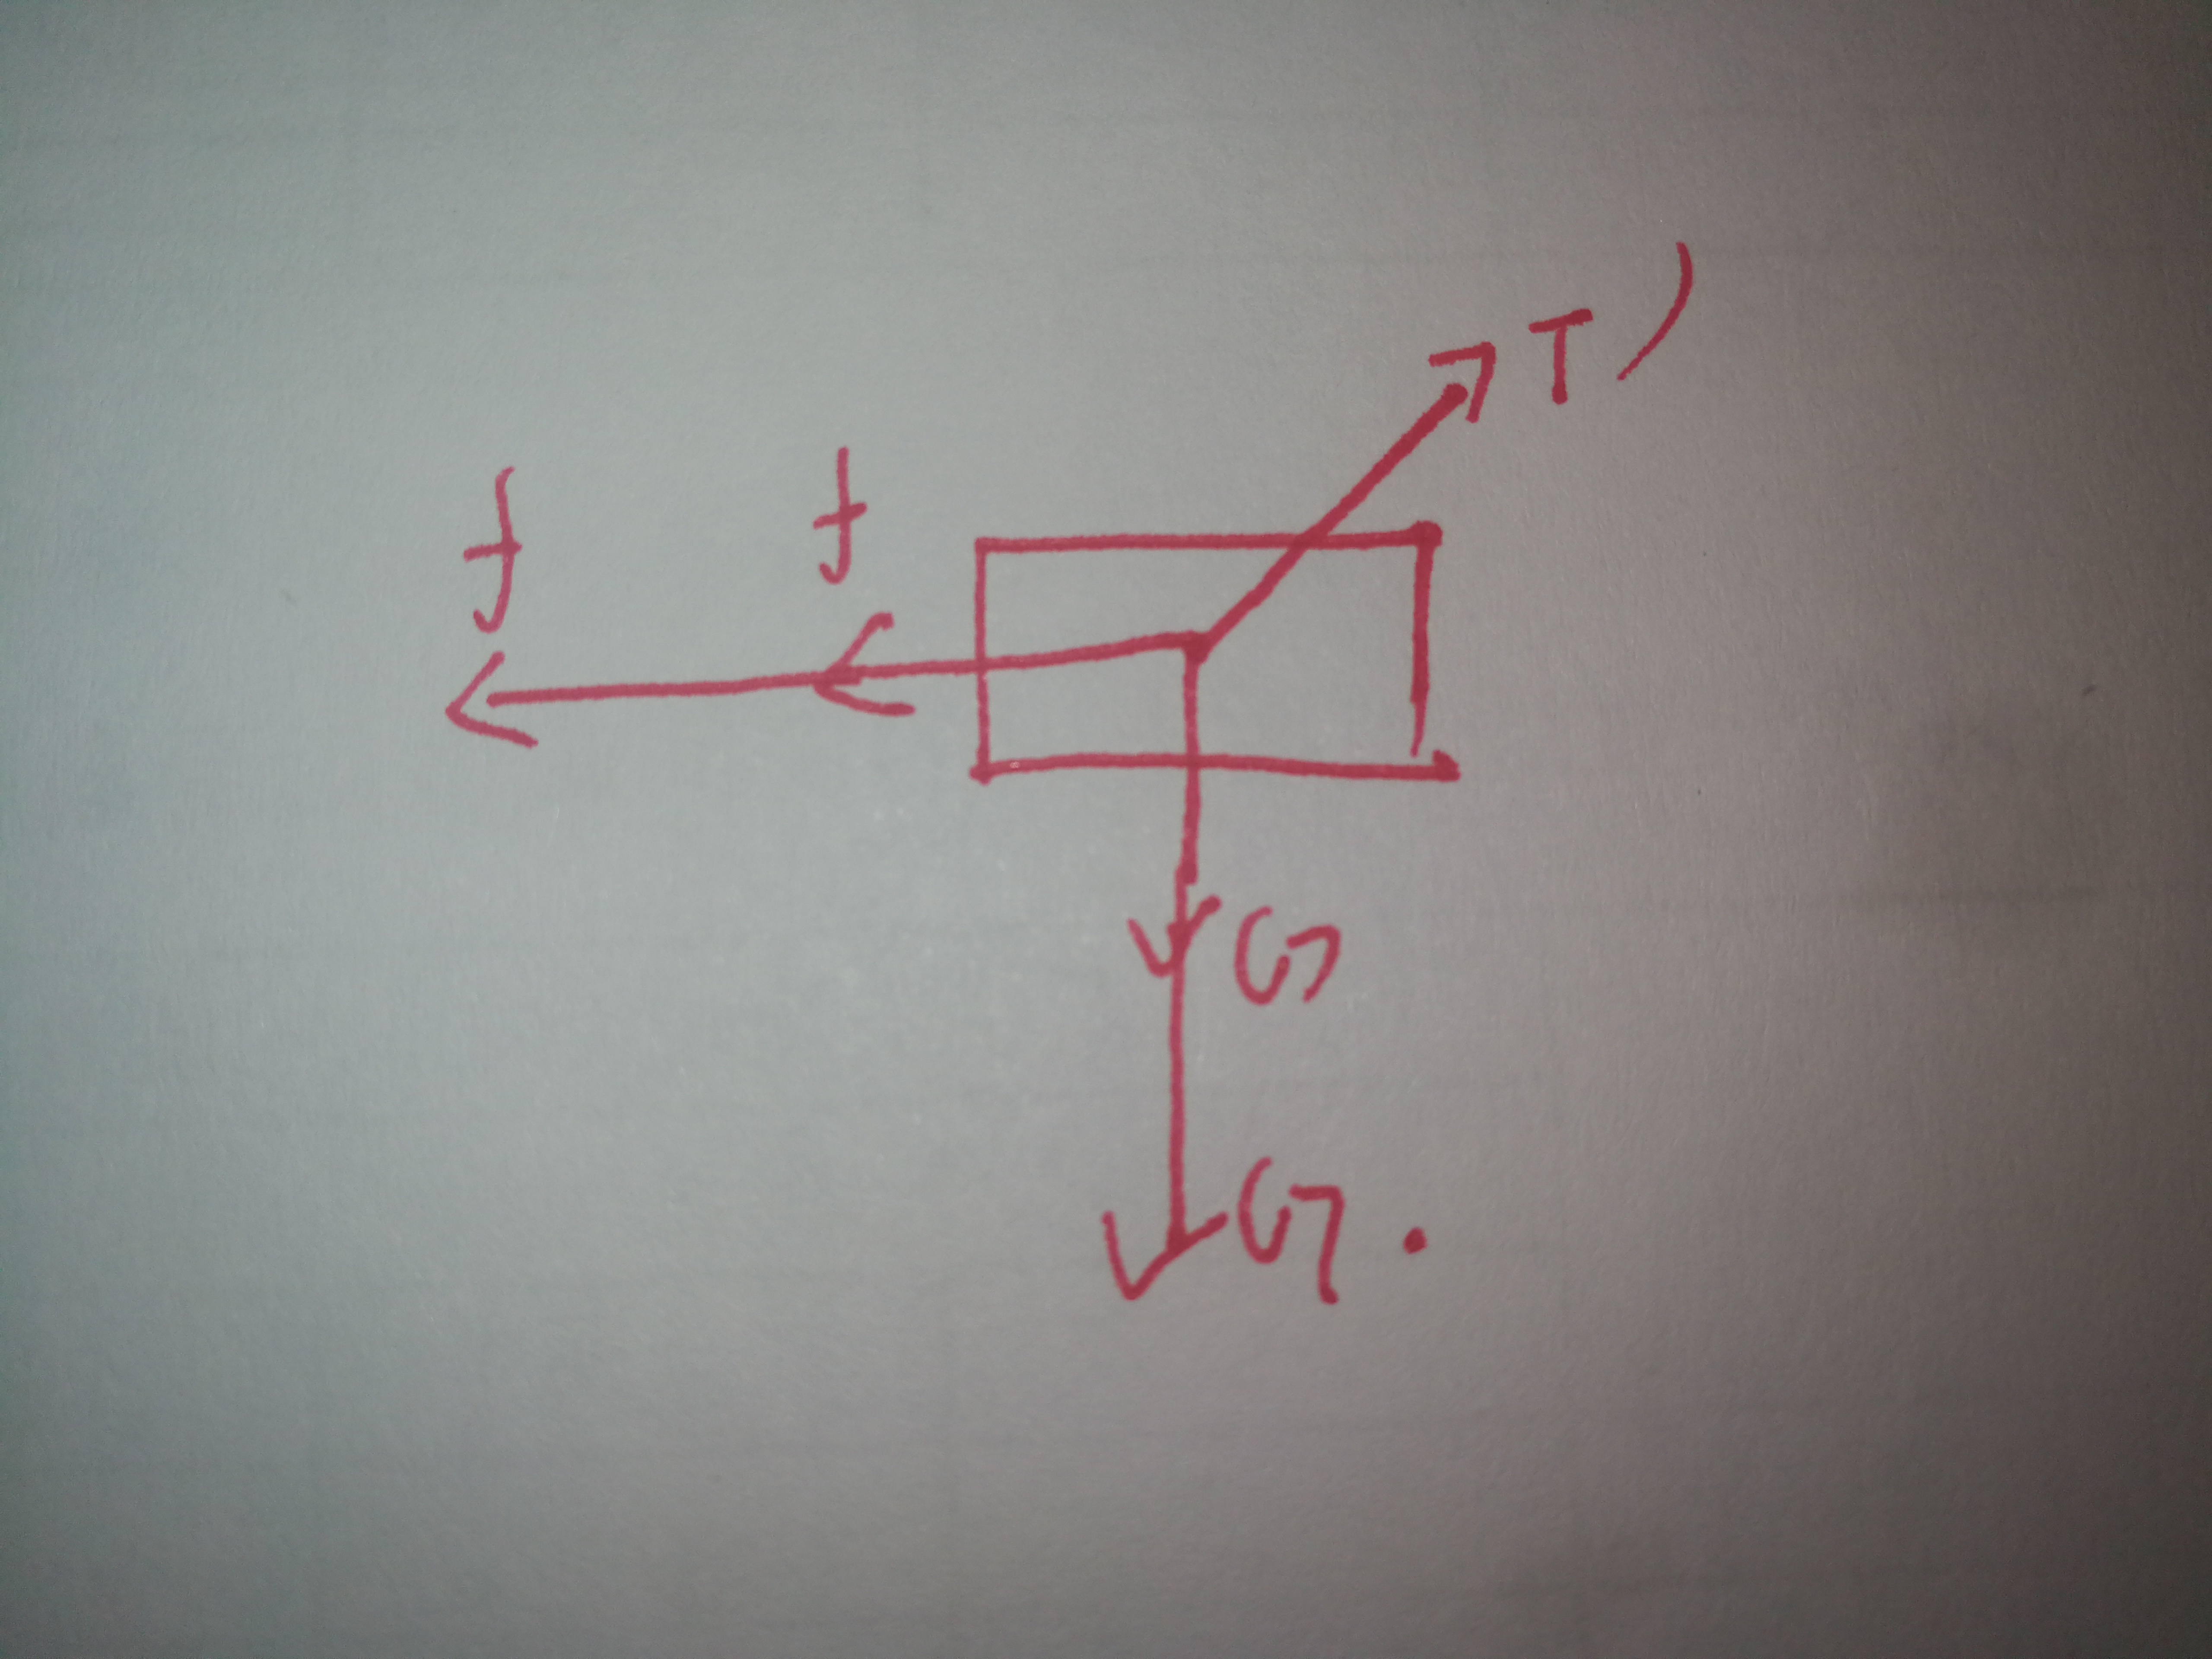 T
f
f
G
G